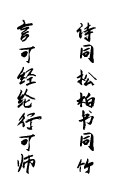 诗同松柏书同竹
言可经纶行可师